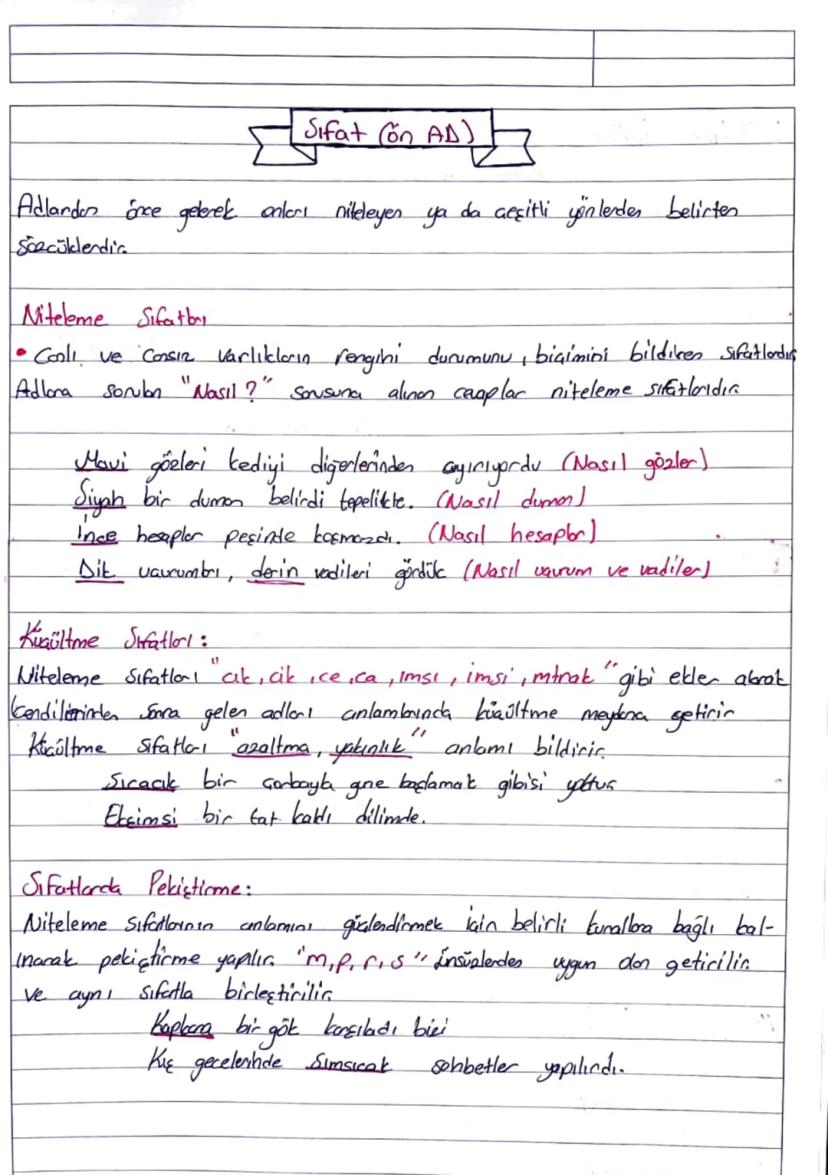 Sıfat (ön AD)
Adlardan önce gelerek onları niteleyen ya da çeşitli yönlerden belirten
sözcüklerdir.
Niteleme Sıfatları
• Canlı ve Cansız varlıkların rengini durumunu, biçimini bildiren sıfatlardır
Adlara sorulan "Nasıl?" sorusuna alınan cevaplar niteleme sıfatlarıdır.
Mavi gözleri kediyi diğerlerinden ayırıyordu (Nasıl gözler)
Siyah bir duman belirdi tepelikte. (Nasıl duman)
İnce hesaplar peşinde koşmazdı. (Nasıl hesaplar)
Dik uçurumları, derin vadileri gördük (Nasıl uçurum ve vadiler)
Küçültme Sıfatları:
Niteleme Sıfatları "cık, cik, ce, ca, ımsı, imsi, mtrak" gibi ekler alarak
kendilerinden sonra gelen adları anlamlarında küçültme meydana getirir
Küçültme Sıfatları "azaltma, yakınlık" anlamı bildirir.
Sıcacık bir çorbayla güne başlamak gibisi yoktur
Ekşimsi bir tat kaldı dilimde.
Sıfatlarda Pekiştirme:
Niteleme sıfatlarının anlamını güçlendirmek için belirli kurallara bağlı kal-
ınarak pekiştirme yapılır. "m, p, r, s" ünsüzlerden uygun olan getirilir.
ve aynı sıfatla birleştirilir.
Kapkara bir gök karşıladı bizi
Kış gecelerinde Sımsıcak sohbetler yapılırdı.